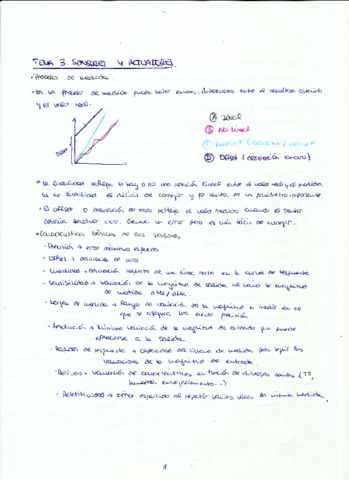 TEMA 3. SENSORES Y ACTUADORES.
• Proceso de medida
- En un proceso de medida puede haber errores, diferencias entre el resultado obtenido
y el valor real.
Ideal
No lineal
Offset (desviación en cero)
Offset
• La linealidad refleja si hay o no una relación lineal entre el valor real y el medido.
La no linealidad es difícil de corregir y por tanto, es un parámetro importante.
• El offset o desviación de cero refleja el valor medido cuando el sensor
debería devolver cero. Genera un error pero es más fácil de corregir.
• Características básicas de los sensores
- Precisión → error máximo esperado
- Offset → desviación de cero
- Linealidad → desviación respecto de una línea recta en la curva de respuesta
- Sensibilidad → variación de la magnitud de salida al variar la magnitud
de medida
- Rango de medida → Rango de variación de la magnitud a medir en el
que se asegura una cierta precisión
- Resolución → Mínima variación de la magnitud de entrada que puede
apreciarse a la salida.
- Rapidez de respuesta → capacidad del sistema de medida para seguir las
variaciones de la magnitud de entrada
- Derivas → variación de características en función de diversos
humedad, envejecimiento...)
- Repetitividad → error esperado al repetir varias veces la misma medida.
1